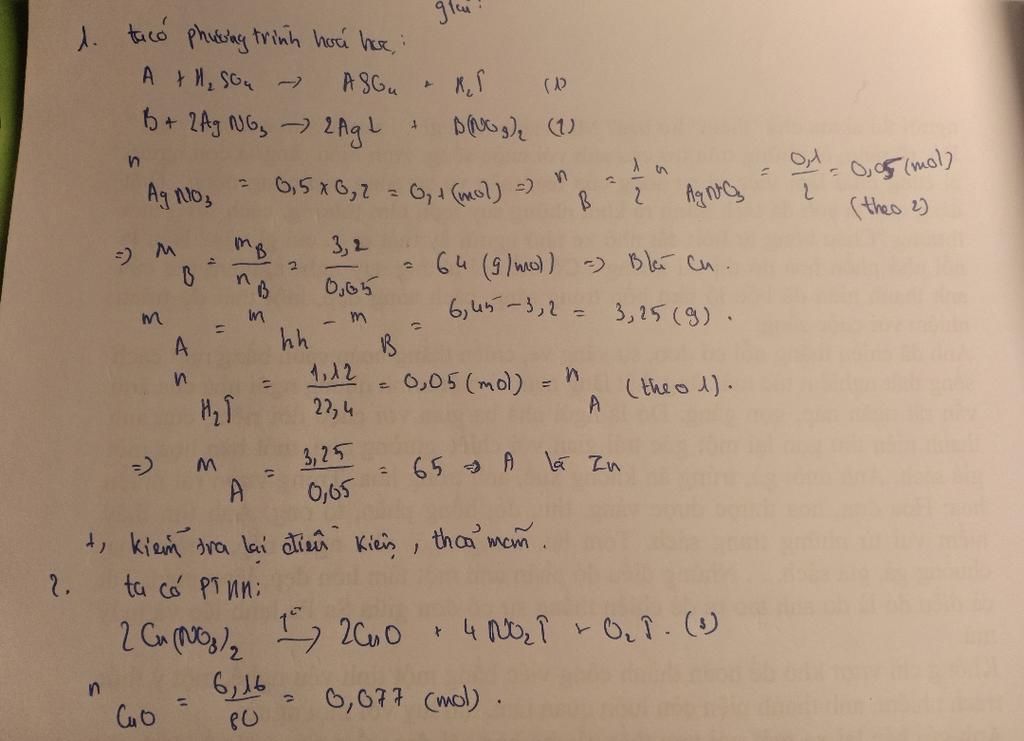 giải:
1. ta có phương trình hoá học:
A + H₂SO₄ → ASO₄ + H₂↑ (1)
B + 2AgNO₃ → 2Ag↓ + B(NO₃)₂ (2)
n AgNO₃ = 0,5 x 0,2 = 0,1 (mol) => n B = 1/2 n AgNO₃ = 0,1/2 = 0,05 (mol) (theo 2)
=> M B = m B / n B = 3,2/0,05 = 64 (g/mol) => B là Cu.
m A = m hh - m B = 6,45 - 3,2 = 3,25 (g).
n H₂↑ = 1,12/22,4 = 0,05 (mol) = n A (theo 1).
=> M A = 3,25/0,05 = 65 => A là Zn
+, kiểm tra lại điều kiện, thoả mãn.
2. ta có PTHH:
2Cu(NO₃)₂ t° → 2CuO + 4NO₂↑ + O₂↑. (3)
n CuO = 6,16/80 = 0,077 (mol).